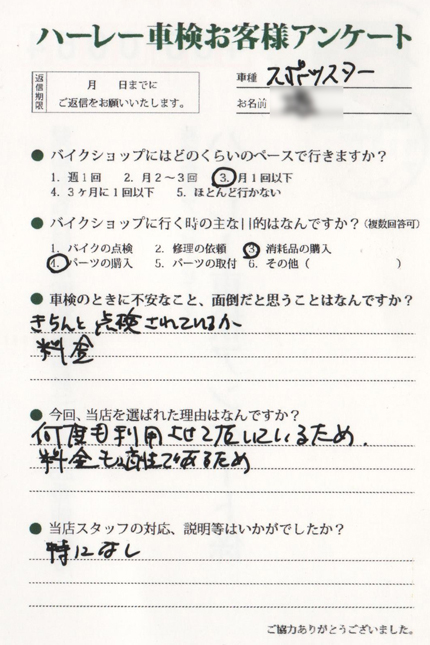 ハーレー車検お客様アンケート
返信期限
月　日までに
ご返信をお願いいたします。
車種 スポーツスター
お名前
● バイクショップにはどのくらいのペースで行きますか？
1. 週1回　2. 月2～3回　3. 月1回以下
4. 3ヶ月に1回以下　5. ほとんど行かない
● バイクショップに行く時の主な目的はなんですか？（複数回答可）
1. バイクの点検　2. 修理の依頼　3. 消耗品の購入
4. パーツの購入　5. パーツの取付　6. その他（　　　）
● 車検のときに不安なこと、面倒だと思うことはなんですか？
きちんと点検されているか
料金
● 今回、当店を選ばれた理由はなんですか？
何度も利用させて頂いているため、
料金も適性であるため
● 当店スタッフの対応、説明等はいかがでしたか？
特になし
ご協力ありがとうございました。